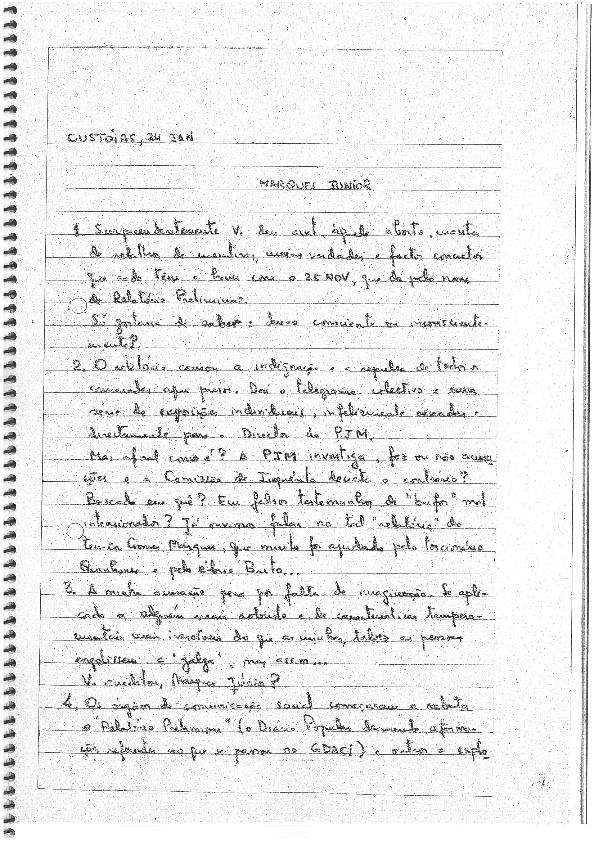 CUSTÓIAS, 24 JAN
MARQUES JUNIOR
1. Surpreendentemente V. deu aval àquele aborto, manta
de retalhos de mentiras, meias verdades e factos concretos
que nada têm a haver com o 25 NOV, que dá pelo nome
de Relatório Preliminar.
Só gostaria de saber: deu-o consciente ou inconsciente-
mente?
2. O relatório causou a indignação e a repulsa de todos os
camaradas aqui presos. Daí o telegrama colectivo e uma
série de exposições individuais, infelizmente enviadas
directamente para o Director da PJM.
Mas afinal como é? A PJM investiga, faz ou não acusa-
ções e a Comissão de Inquérito decreta o contrário?
Baseada em quê? Em falsos testemunhos de "bufos" mal
intencionados? Já ouvimos falar no tal "relatório" do
ten-cor Gomes Marques, que muito foi ajudado pelo torcionário
e pelo Brito...
3. A minha acusação peca por falta de imaginação. Se apli-
cado a alguém mais robusto e de características tempera-
mentais mais irascíveis do que as minhas, talvez as pessoas
engolissem a "galga", mas assim...
V. acreditou, Marques Júnior?
4. Os orgãos de comunicação social começaram a rebater
o "Relatório Preliminar" (o Diário Popular desmente afirma-
ções referentes ao que se passou no GDACI) e outros a explo